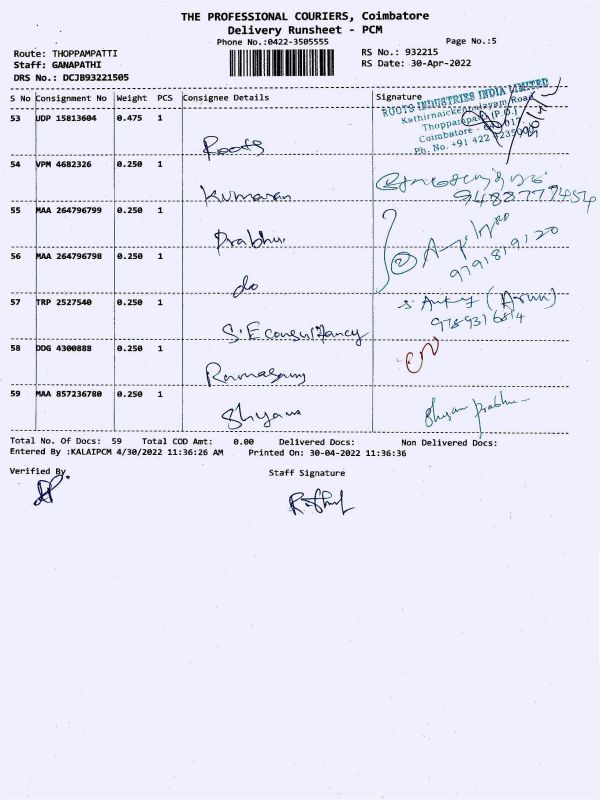 THE PROFESSIONAL COURIERS, Coimbatore
Delivery Runsheet - PCM
Phone No.:0422-3505555
Page No.:5
Route: THOPPAMPATTI
RS No.: 932215
Staff: GANAPATHI
RS Date: 30-Apr-2022
DRS No.: DCJB93221505
S No Consignment No Weight PCS Consignee Details Signature
ROOTS INDUSTRIES INDIA LIMITED
Kathirnaickenpalayam Road
Thoppampatti (P.O.)
Coimbatore - 641 017
Ph. No. +91 422
53 UDP 15813604 0.475 1
Roots
54 VPM 4682326 0.250 1
Kumaran
9488777454
55 MAA 264796799 0.250 1
Prabhu
56 MAA 264796798 0.250 1
do
9791819120
57 TRP 2527540 0.250 1
S.E consultancy
(Arun)
58 DDG 4300888 0.250 1
Ramasamy
59 MAA 857236780 0.250 1
Shyam
Shyam prabhu
Total No. Of Docs: 59 Total COD Amt: 0.00 Delivered Docs: Non Delivered Docs:
Entered By :KALAIPCM 4/30/2022 11:36:26 AM Printed On: 30-04-2022 11:36:36
Verified By Staff Signature